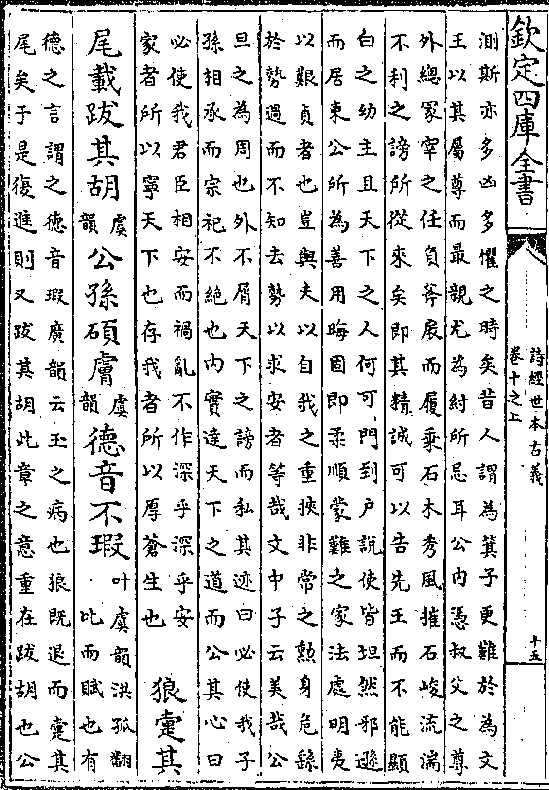 欽定四庫全書
詩經世本古義
卷十之上
十五
淵斯亦多凶多懼之時矣昔人謂為箕子更難於為文
王以其屬尊而最親尤為紂所忌耳公内憑叔父之尊
外總冢宰之任負斧扆而履乘石木秀風摧石峻流湍
不利之謗所從來矣即其精誠可以告先王而不能顯
白之幼主且天下之人何可門到户說使皆坦然邪遜
而居東公所為善用晦固即柔順蒙難之家法處明夷
以艱貞者也豈與夫以自我之重挾非常之勲身危繇
於勢過而不知去勢以求安者等哉文中子云美哉公
旦之為周也外不屑天下之謗而私其迹曰必使我子
孫相承而宗祀不絕也内實達天下之道而公其心曰
必使我君臣相安而禍亂不作深乎深乎安
家者所以寧天下也存我者所以厚蒼生也
狼疐其
尾載跋其胡虞韻公孫碩膚虞韻德音不瑕叶虞韻洪孤翻
比而賦也有
德之言謂之德音瑕廣韻云玉之病也狼既退而疐其
尾矣于是復進則又跋其胡此章之意重在跋胡也公